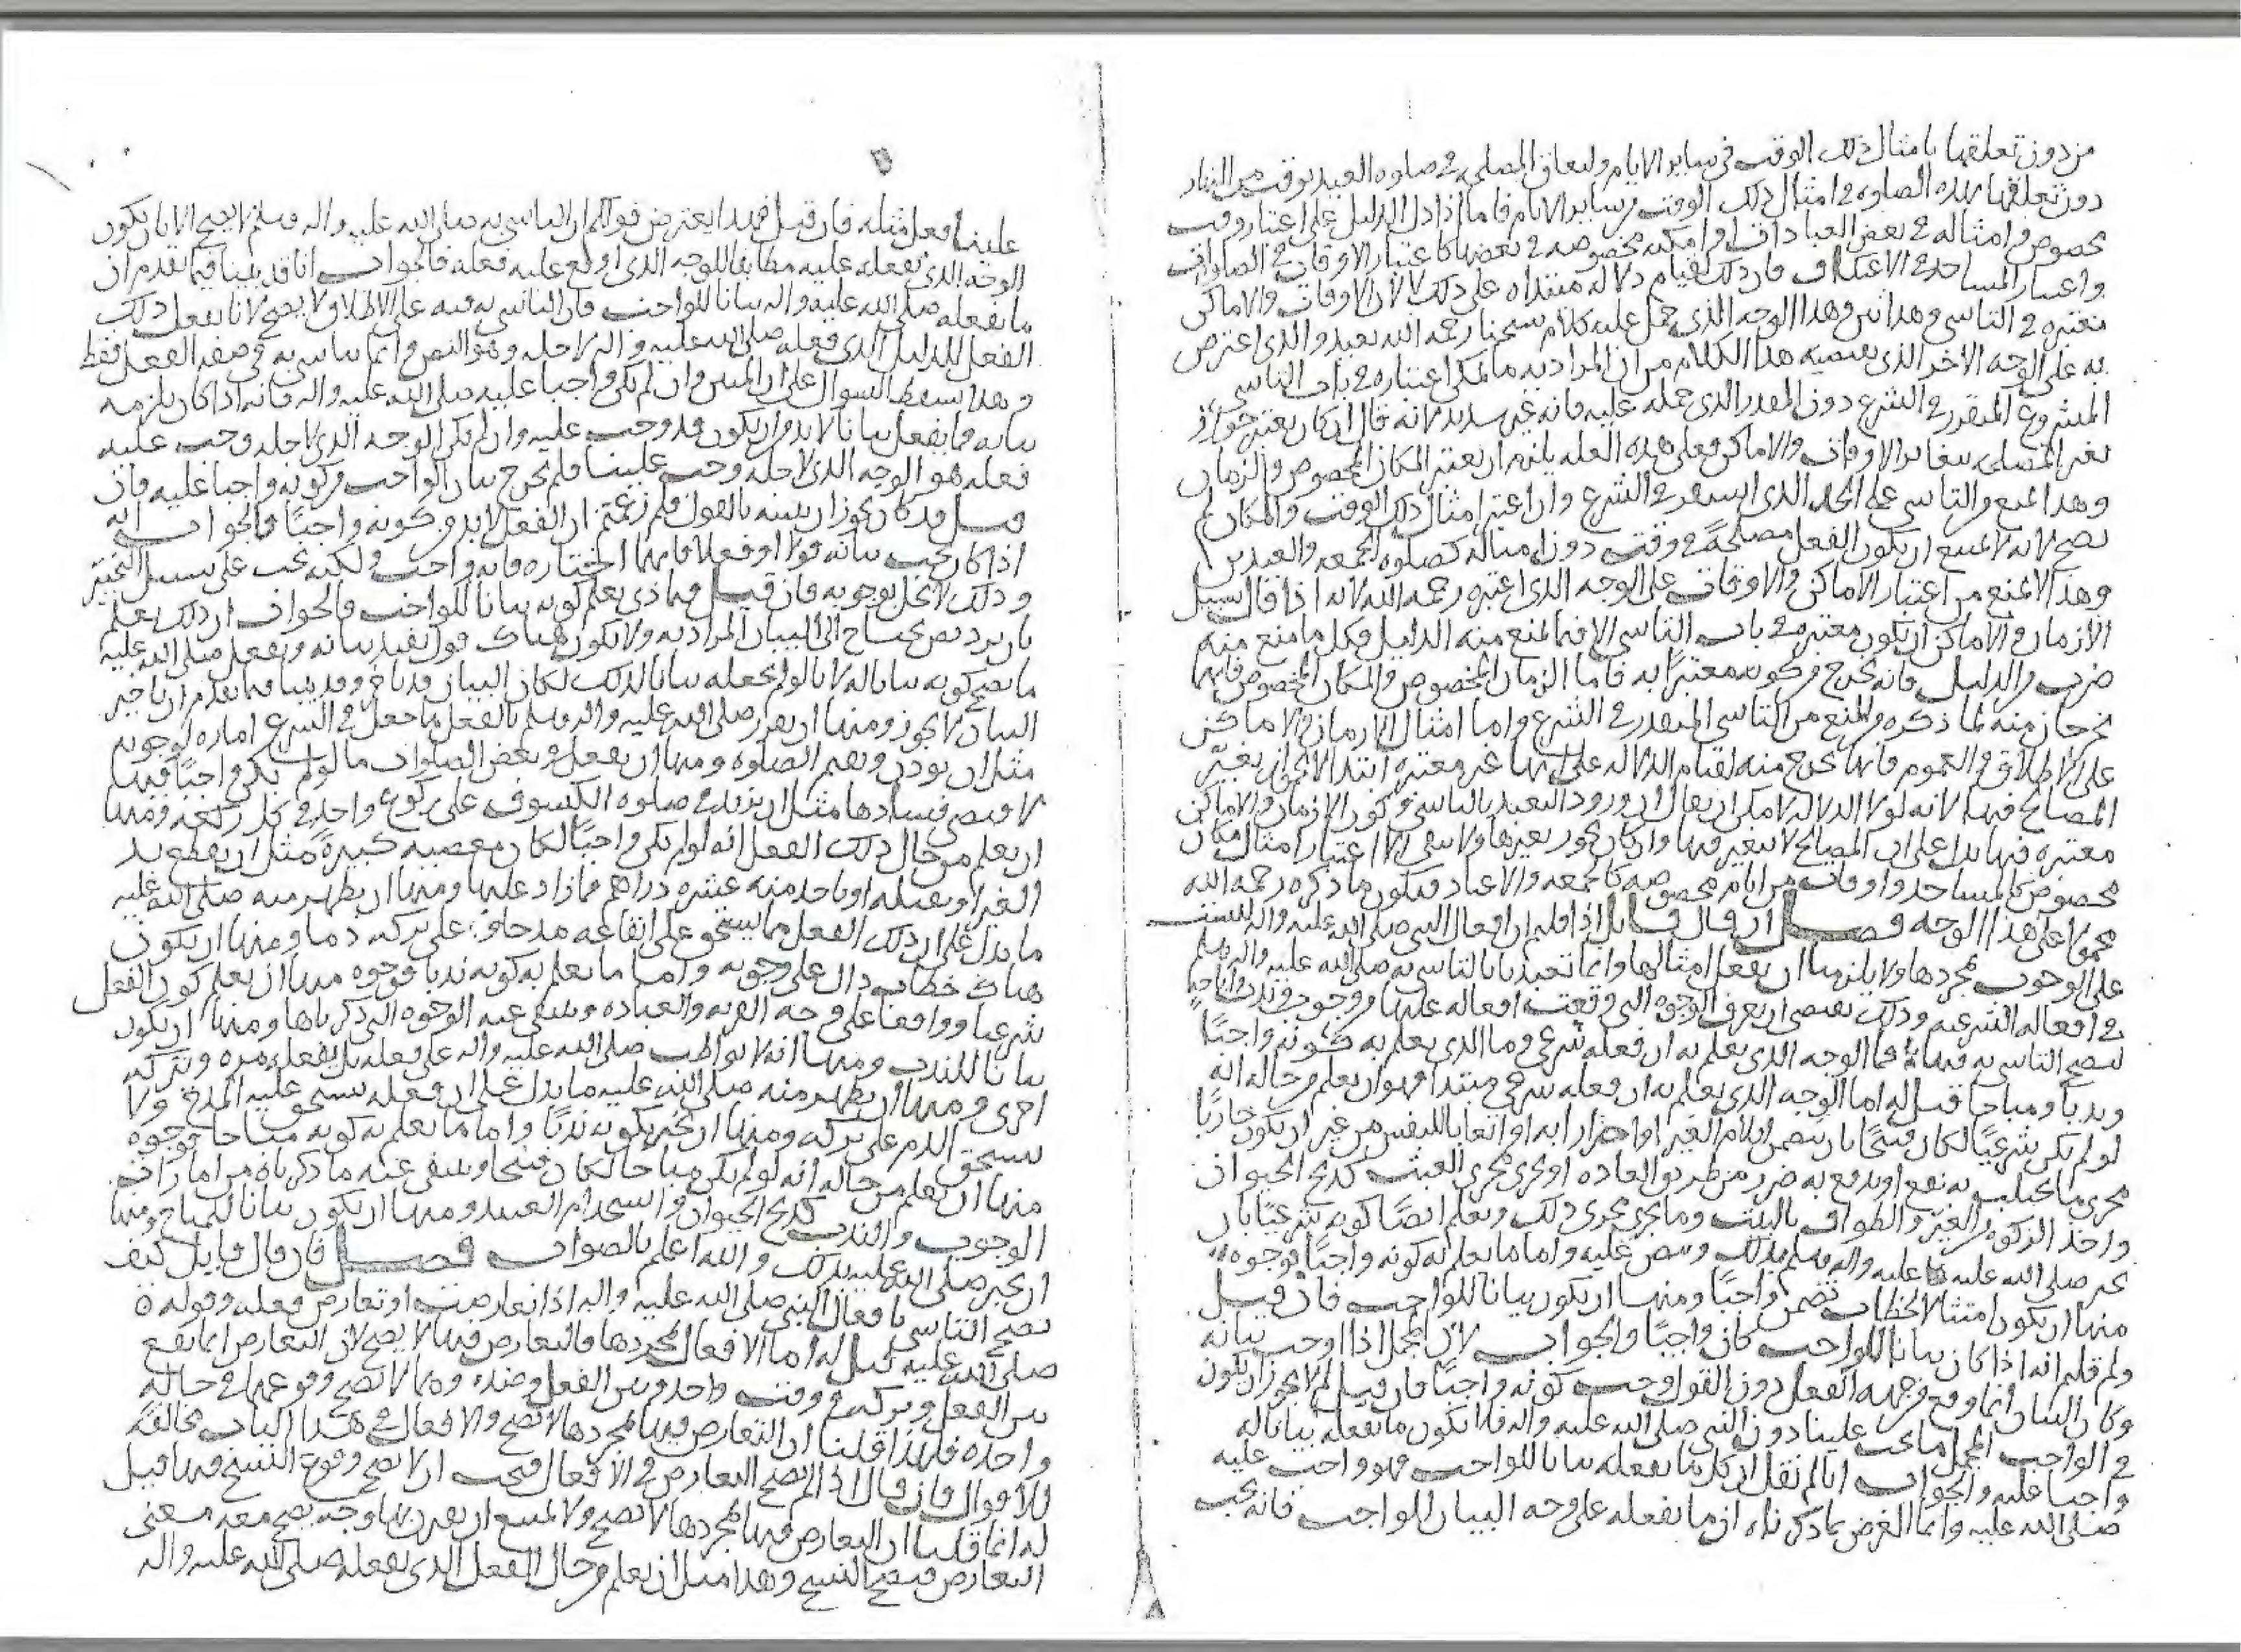 من دون تعلقها بامثال ذلك الوقت في ساير الايام ولتعلق المصلي في صلوه العيد بوقت من النهار
دون تعلقها بهذه الصلوه في امثال ذلك الوقت من ساير الايام فاما اذا دل الدليل على اعتبار وقت
مخصوص وامثاله في بعض العبادات او امكنه مخصوصه في بعضها كاعتبار الاوقات في الصلوات
واعتبار المساجد في الاعتكاف فان ذلك لقيام دلاله مبتداه على ذلك لا لان الاوقات والاماكن
معتبره في التاسي وهذا بين وهذا الوجه الذي حمل عليه كلام شيخنا رحمه الله بعيد والذي اعترض
به على الوجه الاخر الذي يقتضيه هذا الكلام من ان المراد به ما يمكن اعتباره في باب التاسي
المشروع المتقرر في الشرع دون القدر الذي حمله عليه فانه غير سديد لانه قال ان كان يعتبر جواز
تغير المصلي بتغاير الاوقات والاماكن فعلى هذه العله يلزم ان يعتبر المكان المخصوص والزمان
وهذا يمنع من التاسي على الحد الذي استقر في الشرع وان اعتبر امثال ذلك الوقت والمكان لم
يصح لانه لا يمتنع ان يكون الفعل مصلحة في وقت دون امثاله كصلوه الجمعه والعيدين
وهذا لا يمنع من اعتبار الاماكن والاوقات على الوجه الذي اعتبره رحمه الله لانه اذا قال سبيل
الازمان والاماكن ان يكون معتبره في باب التاسي الا فيما يمنع منه الدليل وكل ما منع منه
ضرب من الدليل فانه يخرج من كونه معتبرا به فاما الزمان المخصوص والمكان المخصوص فانهما
يخرجان منه لما ذكره من المنع من التاسي المتقرر في الشرع واما امثال الازمان والاماكن
على الاطلاق والعموم فانها تخرج منه لقيام الدلاله على انها غير معتبره ابتداء لا لجواز تغير
المصالح فيها لانه لولا الدلاله لامكن ان يقال ان ورود التعبد بالتاسي وكون الازمان والاماكن
معتبره فيها يدل على ان المصالح لا تتغير فيها وان كان يجوز تغيرها ولا يبقى الا اعتبار امثال مكان
مخصوص كالمساجد واوقات من ايام مخصوصه كالجمعه والاعياد فيكون ما ذكره رحمه الله
محمولا على هذا الوجه فصل ان قال قايل اذا قلتم ان افعال النبي صلى الله عليه واله ليست
على الوجوب بمجردها ولا يلزمنا ان نفعل امثالها وانما تعبدنا بالتاسي به صلى الله عليه واله وسلم
في افعاله الشرعيه وذلك يقتضي ان يعرف الوجوه التي وقعت افعاله عليها من وجوب وندب واباحه
ليصح التاسي به فيها فما الوجه الذي يعلم به ان فعله شرعي وما الذي يعلم به كونه واجبا
وندبا ومباحا قيل له اما الوجه الذي يعلم به ان فعله شرعي مبتدا فهو ان يعلم من حاله انه
لو لم يكن شرعيا لكان قبيحا بان يتضمن ايلام الغير او اضرارا به او اتعابا للنفس من غير ان يكون جاريا
مجرى ما يجتلب به نفع او يدفع به ضرر من طريق العاده او يجري مجرى العبث كذبح الحيوان
واخذ الزكوه من الغير والطواف بالبيت وما يجري مجرى ذلك ويعلم ايضا كونه شرعيا بان
يخبر صلى الله عليه واله وسلم بذلك وينص عليه واما ما يعلم به كونه واجبا فوجوه
منها ان يكون امتثالا لخطاب تضمن واجبا ومنها ان يكون بيانا للواجب فان قيل
ولم قلتم انه اذا كان بيانا للواجب كان واجبا والجواب لان المجمل اذا اوجب بيانه
وكان البيان انما وقع من جهه الفعل دون القول وجب كونه واجبا فان قيل لم لا يجوز ان يكون
في الواجب المجمل ما يجب علينا دون النبي صلى الله عليه واله فلا يكون ما يفعله بيانا له
واجبا عليه والجواب انا لم نقل ان كل ما يفعله بيانا للواجب فهو واجب عليه
صلى الله عليه وانما الغرض بما ذكرناه ان ما يفعله على وجه البيان للواجب فانه يجب
علينا فعل مثله فان قيل فهذا يعترض قولكم ان التاسي به صلى الله عليه واله وسلم لا يصح الا بان يكون
الوجه الذي نفعله عليه مطابقا للوجه الذي اوقع عليه فعله فالجواب انا قد بينا فيما تقدم ان
ما يفعله صلى الله عليه واله بيانا للواجب فان التاسي به فيه على الاطلاق لا يصح لانا نفعل ذلك
الفعل للدليل الذي فعله صلى الله عليه واله لاجله وهو النص وانما نتاسى به في صفه الفعل فقط
وهذا يسقط السوال على ان المبين وان لم يكن واجبا عليه صلى الله عليه واله فانه اذا كان يلزمه
بيانه فما يفعل بيانا لا بد من ان يكون قد وجب عليه وان لم يكن الوجه الذي لاجله وجب عليه
فعله هو الوجه الذي لاجله وجب علينا فلم يخرج بيان الواجب من كونه واجبا عليه فان
قيل قد كان يجوز ان يبينه بالقول فلم زعمتم ان الفعل لا بد من كونه واجبا فالجواب انه
اذا كان يجب بيانه قولا او فعلا فايهما اختاره فانه واجب ولكنه يجب على سبيل التخيير
وذلك لا يخل بوجوبه فان قيل فبماذا يعلم كونه بيانا للواجب والجواب ان ذلك يعلم
بان يرد نص يحتاج الى البيان المراد به ولا يكون هناك قول تقيد بيانه ويفعل صلى الله عليه
ما يصح كونه بيانا له لانا لو لم نجعله بيانا لذلك لكان البيان قد تاخر وقد بينا فيما تقدم ان تاخير
البيان لا يجوز ومنها ان يقرر صلى الله عليه واله وسلم بالفعل ما جعل في الشرع اماره لوجوبه
مثل ان يوذن ويقيم الصلوه ومنها ان يفعل في بعض الصلوات ما لو لم يكن واجبا فيها
لاقتضى فسادها مثل ان يزيد في صلوه الكسوف على ركوع واحد في كل ركعه ومنها
ان يعلم من حال ذلك الفعل انه لو لم يكن واجبا لكان معصيه كبيره مثل ان يقطع يد
الغير او يقتله او ياخذ منه عشره دراهم فما زاد عليها ومنها ان يظهر منه صلى الله عليه
ما يدل على ان ذلك الفعل مما يستحق على ايقاعه مدحا وعلى تركه ذما ومنها ان يكون
هناك خطاب دال على وجوبه واما ما يعلم به كونه ندبا فوجوه منها ان يعلم كون الفعل
شرعيا وواقعا على وجه القربه والعباده وينتفي عنه الوجوه التي ذكرناها ومنها ان يكون
بيانا للندب ومنها انه لا يواظب صلى الله عليه واله على فعله بل يفعله مره ويتركه
اخرى ومنها ان يظهر منه صلى الله عليه ما يدل على ان فعله يستحق عليه المدح ولا
يستحق الذم على تركه ومنها ان يخبر بكونه ندبا واما ما يعلم به كونه مباحا فوجوه
منها ان يعلم من حاله انه لو لم يكن مباحا لكان قبيحا وينتفي عنه ما ذكرناه من امارات
الوجوب والندب كذبح الحيوان واستخدام العبيد ومنها ان يكون بيانا للمباح ومنها
ان يخبر صلى الله عليه بذلك والله اعلم بالصواب فصل فان قال قايل كيف
يصح التاسي بافعال النبي صلى الله عليه واله اذا تعارضت او تعارض فعله وقوله
صلى الله عليه قيل له اما الافعال بمجردها فالتعارض فيها لا يصح لان التعارض انما يقع
بين الفعل وتركه في وقت واحد وبين الفعل وضده وهما لا يصح وقوعهما في حاله
واحده فلهذا قلنا ان التعارض فيها بمجردها لا يصح والافعال في هذا الباب مخالفة
للاقوال فان قال اذا لم يصح التعارض في الافعال فيجب ان لا يصح وقوع النسخ فيها قيل
له انما قلنا ان التعارض فيها بمجردها لا يصح ولا يمتنع ان يقترن بها وجه يصح معه معنى
التعارض فيصح النسخ وهذا مثل ان يعلم من حال الفعل الذي يفعله صلى الله عليه واله